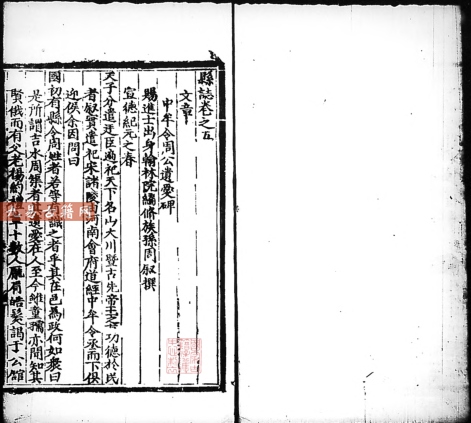 縣誌卷之五
文章
中牟令周公遺愛碑
賜進士出身翰林院編修族孫周叙撰
宣德紀元之春
天子分遣廷臣遍祀天下名山大川暨古先帝王之功德於民
者叙實遣祀宋諸陵河南會府道經中牟令丞而下俱
迎侯余因問曰
國初有縣令周姓者若等有識之者乎其在邑為政何如衆曰
是所謂吉水周榘者其遺愛在人至今雖童孺亦問知其
賢俄而有父老楊約等十數人龎眉皓髮謁于公館